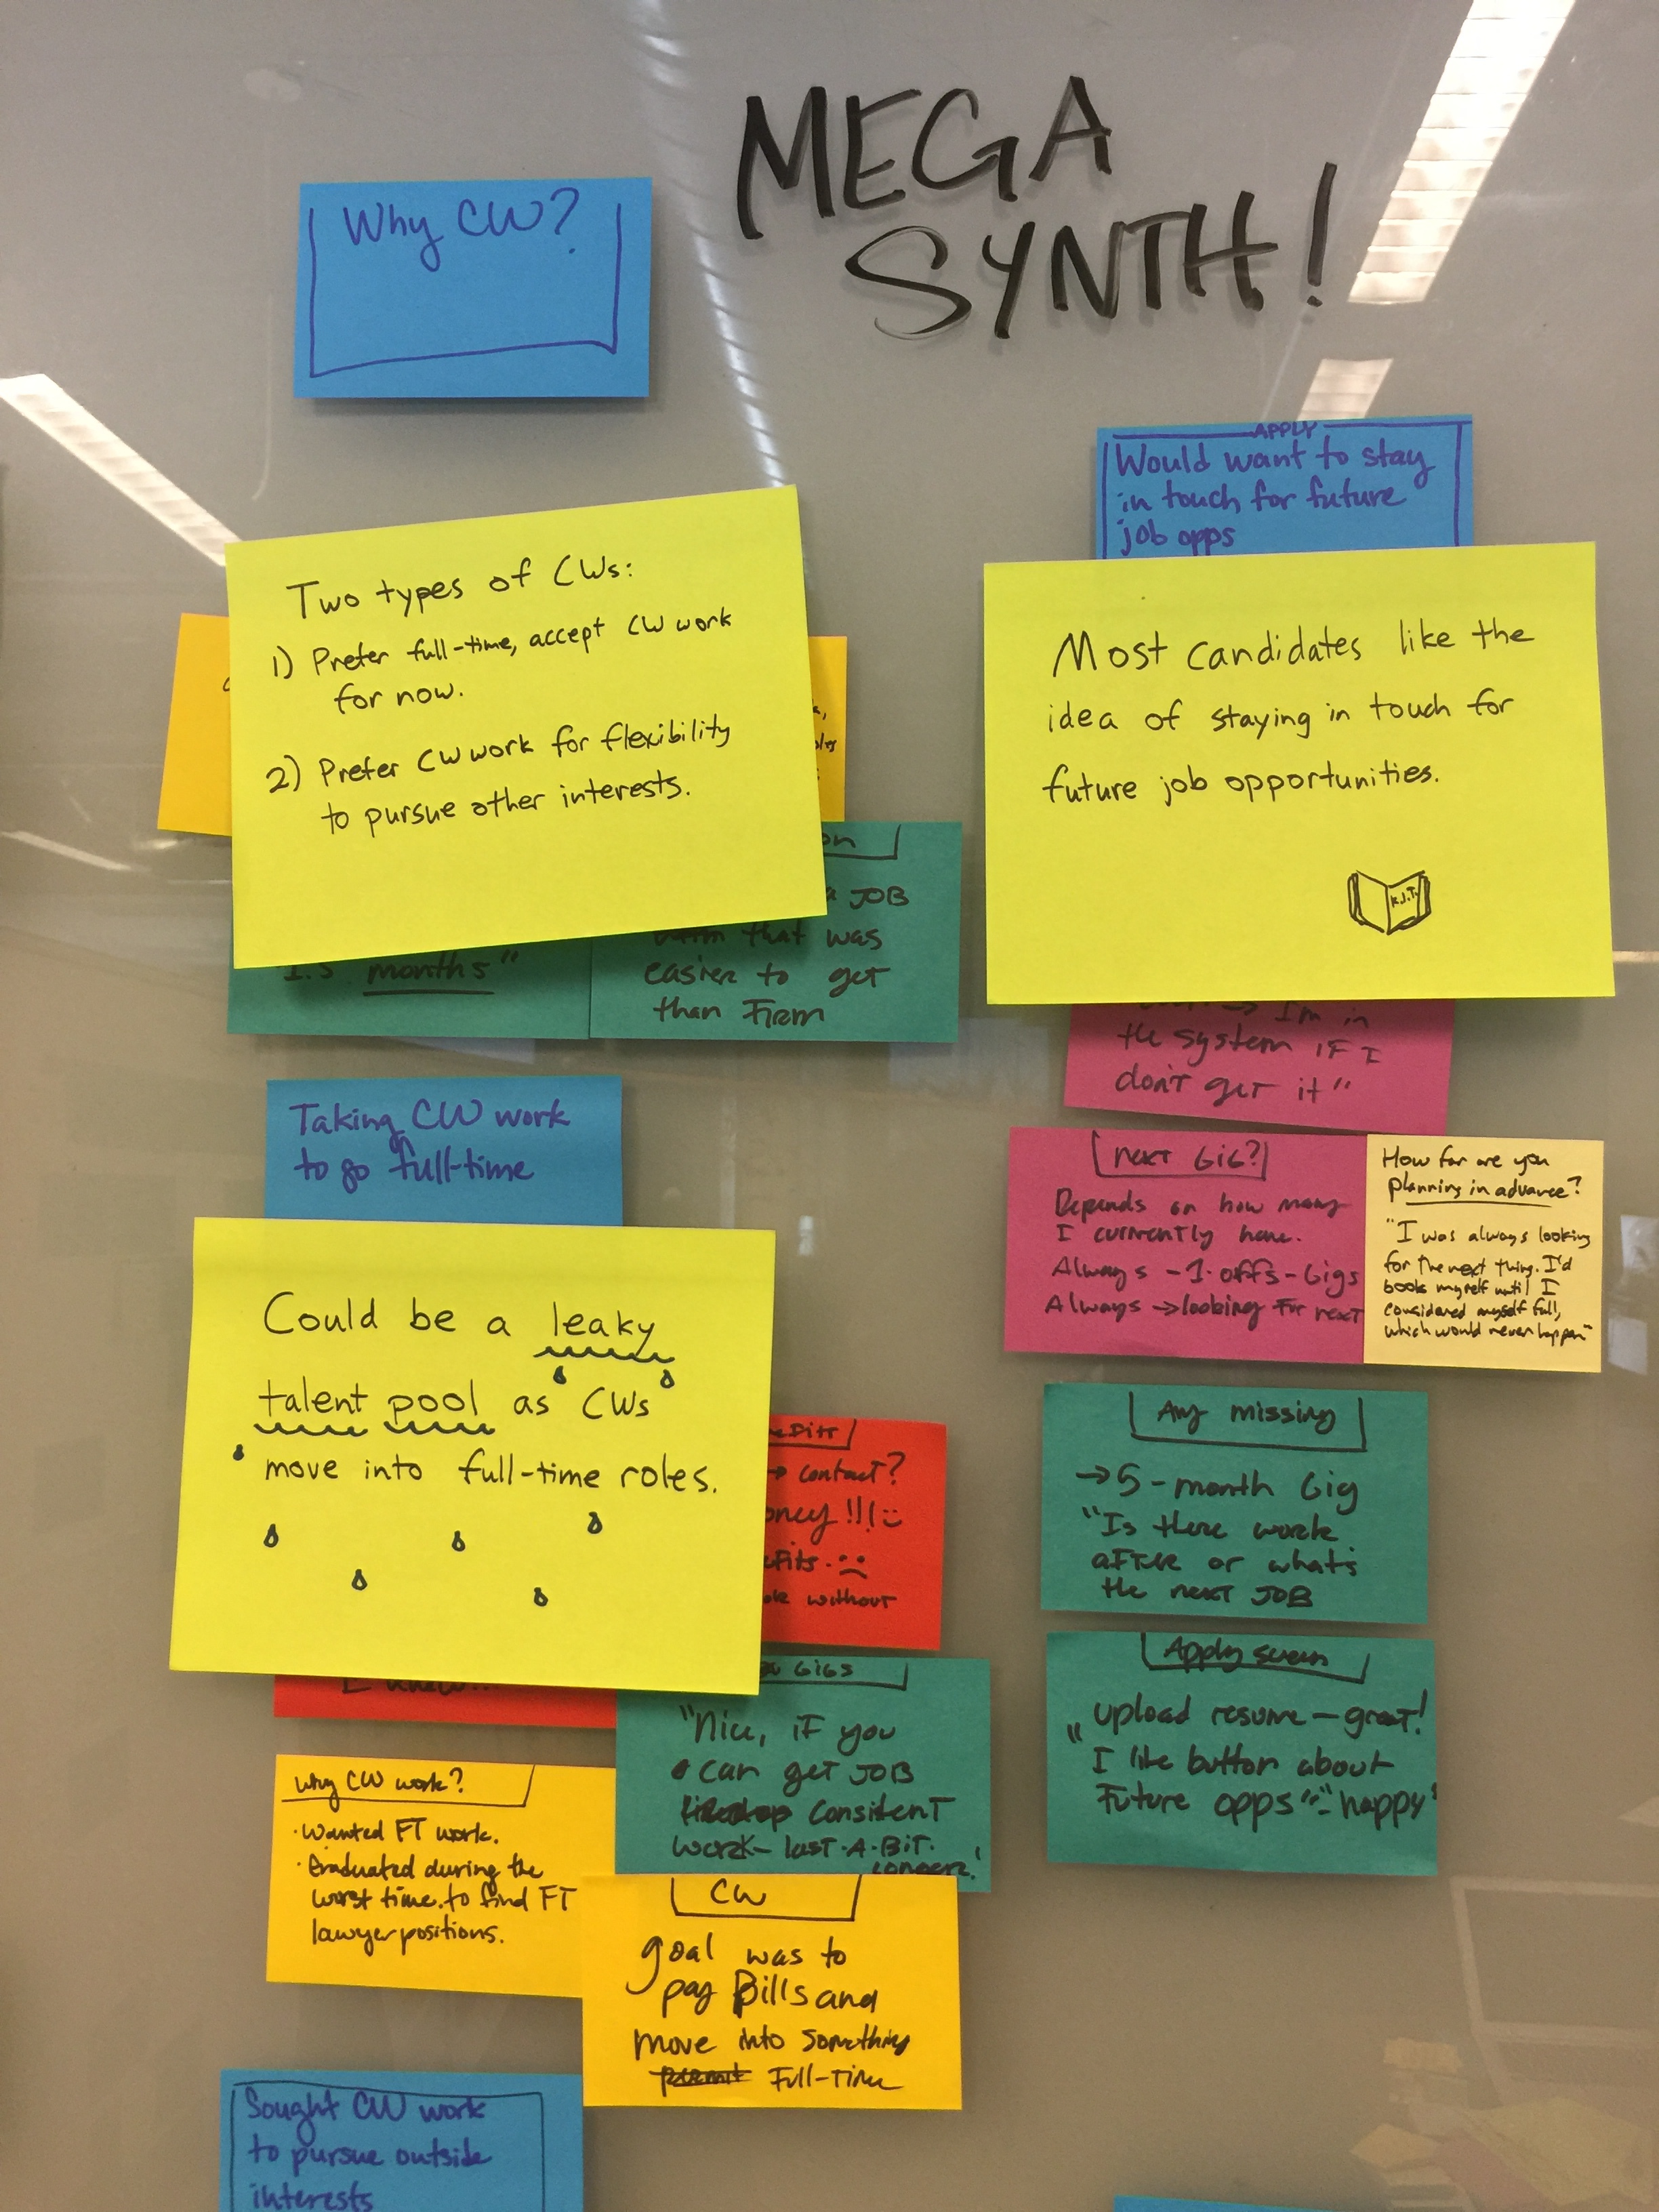 MEGA
SYNTH!
Why CW?
Two types of CWs:
1) Prefer full-time, accept CW work
for now.
2) Prefer CW work for flexibility
to pursue other interests.
1.5 months"
on
a JOB
that was
easier to get
than Firm
Taking CW work
to go full-time
Could be a leaky
talent pool as CWs
move into full-time roles.
contact?
!!!
without
Gigs
"Nice, if you
can get JOB
consitent
work - last-A-BiT.
longer!
Why CW work?
· Wanted FT work.
· Graduated during the
worst time to find FT
lawyer positions.
CW
goal was to
pay Bills and
move into something
Full-Time
Sought CW work
to pursue outside
interests
APPLY
Would want to stay
in touch for future
job opps
Most candidates like the
idea of staying in touch for
future job opportunities.
K.I.T.
I'm in
the system if I
don't get it"
next Gig?
Depends on how many
I currently have.
Always - 1-offs - Gigs
Always → looking For next
How far are you
planning in advance?
"I was always looking
for the next thing. I'd
book myself until I
considered myself full,
which would never happen"
Any missing
→ 5-month Gig
"Is there work
after or what's
the next JOB
Apply screen
"Upload resume - great!
I like button about
Future opps" - "happy"